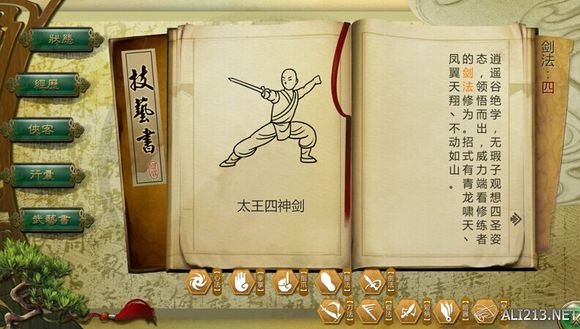 狀態
經歷
俠客
行囊
武藝書
技藝書
太王四神剑
剑法：四
逍遥谷绝学，无瑕子观想四圣姿
态，领悟而出，威力端看修练者
的剑法修为。招式有青龙啸天、
凤翼天翔、不动如山。
ALI213.NET